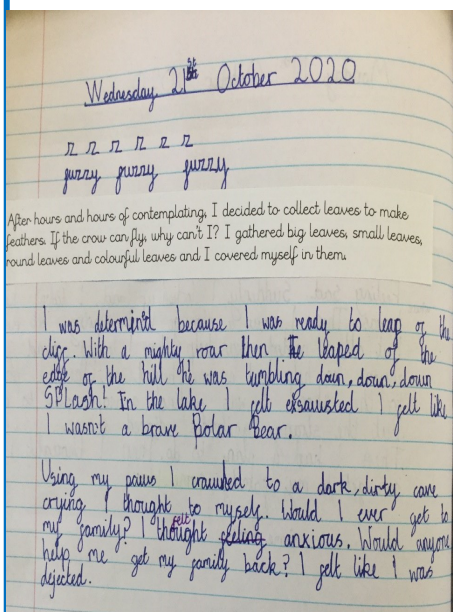 Wednesday 21st October 2020
zz zz zz zz zz zz
fuzzy fuzzy fuzzy
After hours and hours of contemplating, I decided to collect leaves to make
feathers. If the crow can fly, why can't I? I gathered big leaves, small leaves,
round leaves and colourful leaves and I covered myself in them.
I was determin'd because I was ready to leap of the
cliff. With a mighty roar then he leaped of the
edge of the hill he was tumbling down, down, down
SPLash! In the lake I felt exsausted I felt like
I wasn't a brave Polar Bear.
Using my paws I crawled to a dark, dirty cave
crying I thought to myself. Would I ever get to
my family? I thought felt feeling anxious. Would anyone
help me get my family back? I felt like I was
dejected.